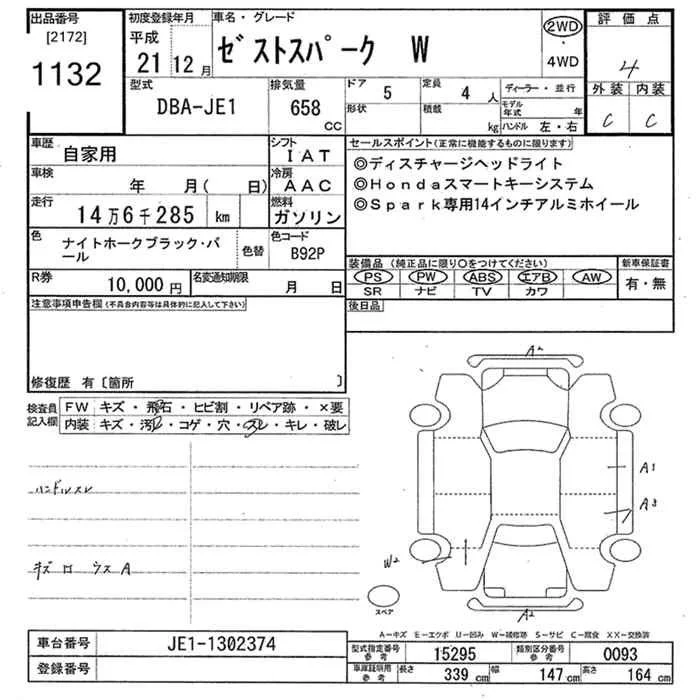 出品番号 初度登録年月 車名・グレード 評価点
[2172] 平成
1132 21 12月 ゼストスパーク W 2WD・4WD 4
型式 排気量 ドア 5 定員 4人 ディーラー・並行 外装 内装
DBA-JE1 658cc 形状 積載 kg モデル年式 年 C C
ハンドル 左・右
車歴 自家用 シフト IAT セールスポイント(正常に機能するものに限ります)
車検 年 月( 日) 冷房 AAC ◎ディスチャージヘッドライト
◎Hondaスマートキーシステム
走行 14万6千285 km 燃料 ガソリン ◎Spark専用14インチアルミホイール
色 ナイトホークブラック・パール 色替 色コード B92P
装備品(純正品に限り○をつけてください) 新車保証書
R券 10,000円 名変通知期限 月 日 PS PW ABS エアB AW 有・無
SR ナビ TV カワ
注意事項申告欄(不具合内容等は具体的に記入して下さい) 後日品
修復歴 有〔箇所 〕
検査員記入欄 FW キズ・飛石・ヒビ割・リペア跡・×要
内装 キズ・汚レ・コゲ・穴・スレ・キレ・破レ
A2
A1
ハンドルスレ
A3
W2
キズ ロ ウス A
スペア
A2
A-キズ E-エクボ U-凹み W-補修跡 S-サビ C-腐食 XX-交換済
車台番号 JE1-1302374
型式指定番号参考 15295 類別区分番号参考 0093
登録番号
車庫証明用参考 長さ 339cm 幅 147cm 高さ 164cm